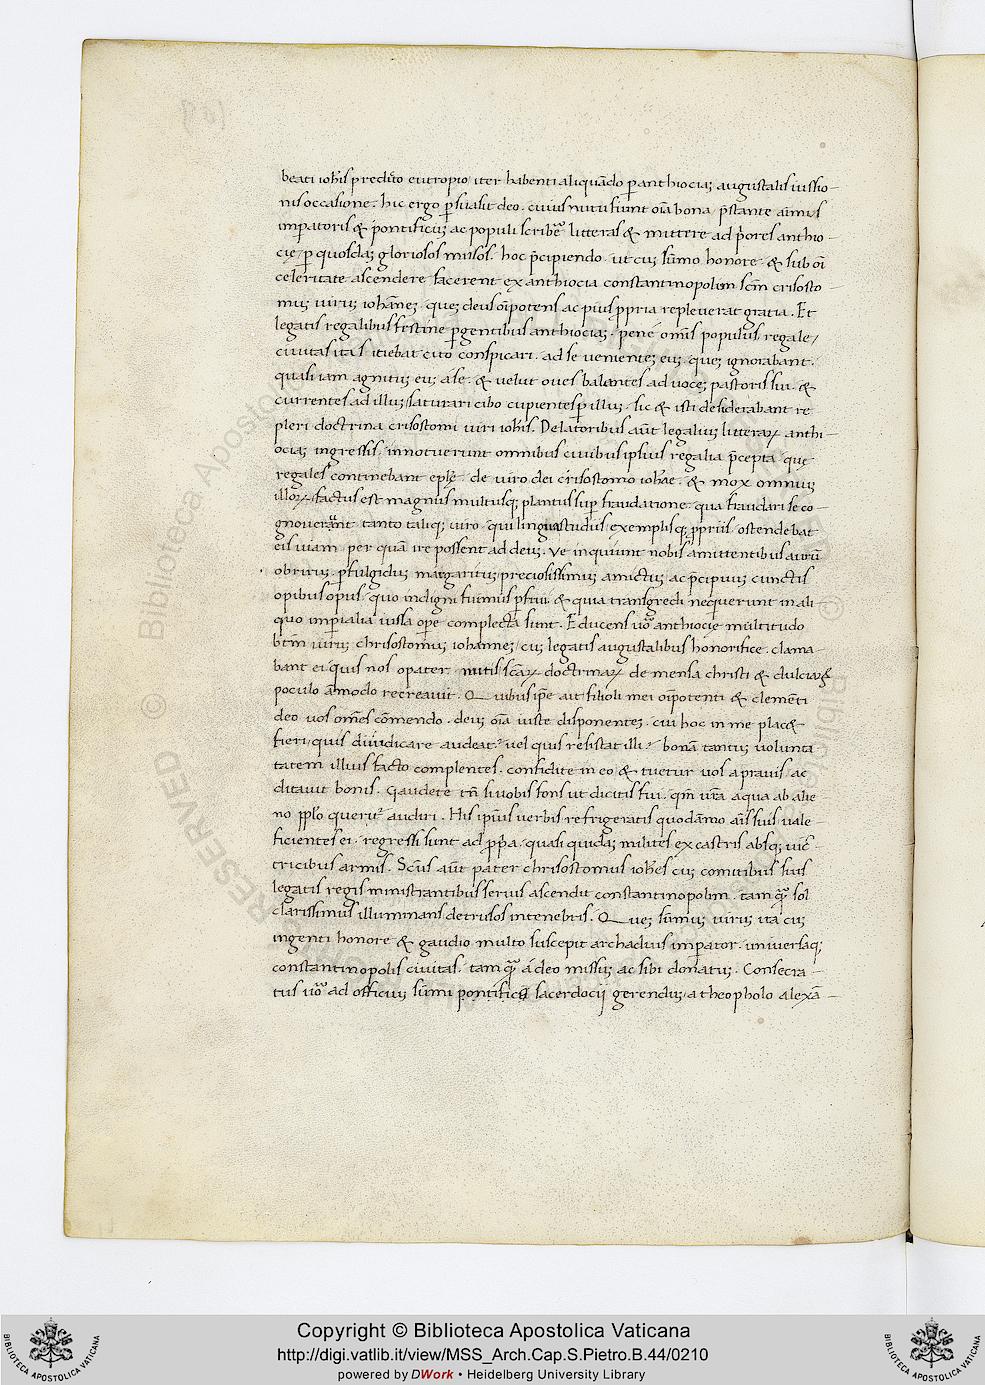 beati ioħis predicto eutropio iter habenti aliquādo p anthiociaȝ augustalis iussio-
nis occasione. hic ergo ꝑsuasit deo. cuius nutu fiunt oīa bona p̄stante animis
imꝑatoris & pontificuȝ ac populi scribere litteras & mittere ad p̄ores anthio-
cię ꝑ quosdaȝ gloriosos missos. hoc p̄cipiendo. ut cuȝ sūmo honore & sub oī
celeritate ascendere facerent ex anthiocia constantinopolim scm̄ crisosto-
muȝ uiruȝ iohāneȝ. queȝ deus oīpotens ac pius ꝓpria repleuerat gratia. Et
legatis regalibus festine ꝑgentibus anthiociaȝ. pene omīs populus regale
ciuitas ita sitiebat cito conspicari. ad se uenienteȝ euȝ. queȝ ignorabant.
quasi iam agnituȝ euȝ a se. & velut oues balantes ad uoceȝ pastoris sui. &
currentes ad illuȝ saturari cibo cupientes ꝑ illuȝ. sic & isti desiderabant re
pleri doctrina crisostomi uiri ioħis. Delatoribus aūt legaliuȝ litteraꝝ anthi-
ociaȝ ingressis. innotuerunt omnibus ciuibus ipsius regalia p̄cepta. quę
regales continebant eplę. de uiro dei crisostomo ioħe. & mox omniuȝ
illoꝝ factus est magnus multusqȝ planctus suꝑ fraudatione. qua fraudari se co-
gnouerant tanto taliqȝ uiro. qui lingua studuis exemplisqȝ ꝓpriis. ostendebat
eis uiam. per quā ire possent ad deuȝ. Ve inquiunt nobis amittentibus aurū
obrizuȝ. ꝑfulgidus margarituȝ preciosissimuȝ amictuȝ ac p̄cipuuȝ cunctis
opibus opus. quo indigni fuimus ꝑfrui. & quia transgredi nequerunt in ali
quo imꝑialia iussa oꝑe complecta sunt. Educens ūo anthiocię multitudo
btm̄ uiruȝ chrisostomuȝ iohanneȝ. cuȝ legatis augustalibus honorifice. clama-
bant ei quis nos o pater. nutis scāꝝ doctrinaꝝ. de mensa christi & dulciaꝝ
poculo āmodo recreauit. Quibus ipse ait filioli mei oīpotenti & clementi
deo uos om̄es cōmendo. deuȝ oīa iuste disponenteȝ. cui hoc in me plac&
fieri, quis diiudicare audeat? uel quis resistat illi? bonā tantuȝ uolunta
tatem illius facto complentes. confidite in eo & tuetur uos a prauis ac
ditauit bonis. Gaudete tn̄ si uobis fons ut dicitis fui. qm̄ ur̄a aqua ab alie
no pplo querit audiri. His ipsiuȝ uerbis refrigeratis quodāmo aīs suis uale-
ficientes ei. regressi sunt ad ꝓpa. quasi quidaȝ milites ex castris absqȝ uic-
tricibus armis. Scūs aūt pater chrisostomus ioħes cuȝ comitibus suis
legatis regis ministrantibus seruis ascendit constantinopolim. tamqȝ sol
clarissimus illuminans detrusos in tenebris. Queȝ sūmuȝ uiruȝ ita cuȝ
ingenti honore & gaudio multo suscepit archadius imꝑator. uniuersaqȝ
constantinopolis ciuitas. tamqȝ a deo missuȝ ac sibi donatuȝ. Consecra-
tus ūo ad officiuȝ sūmi pontificis sacerdocij gerenduȝ a theopholo alexā-
Copyright © Biblioteca Apostolica Vaticana
http://digi.vatlib.it/view/MSS_Arch.Cap.S.Pietro.B.44/0210
powered by DWork • Heidelberg University Library